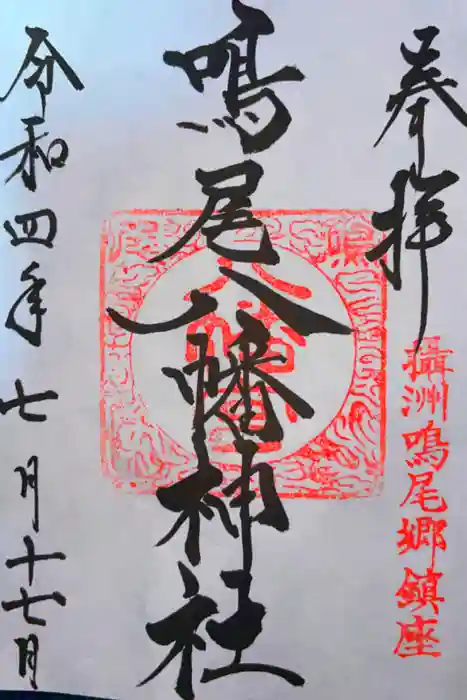 奉拝
攝洲鳴尾郷鎮座
鳴尾八幡神社
令和四年七月十七日